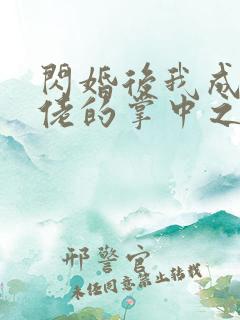 閃婚後我成
佬的掌中之
邢警官
未任同意禁止轉載